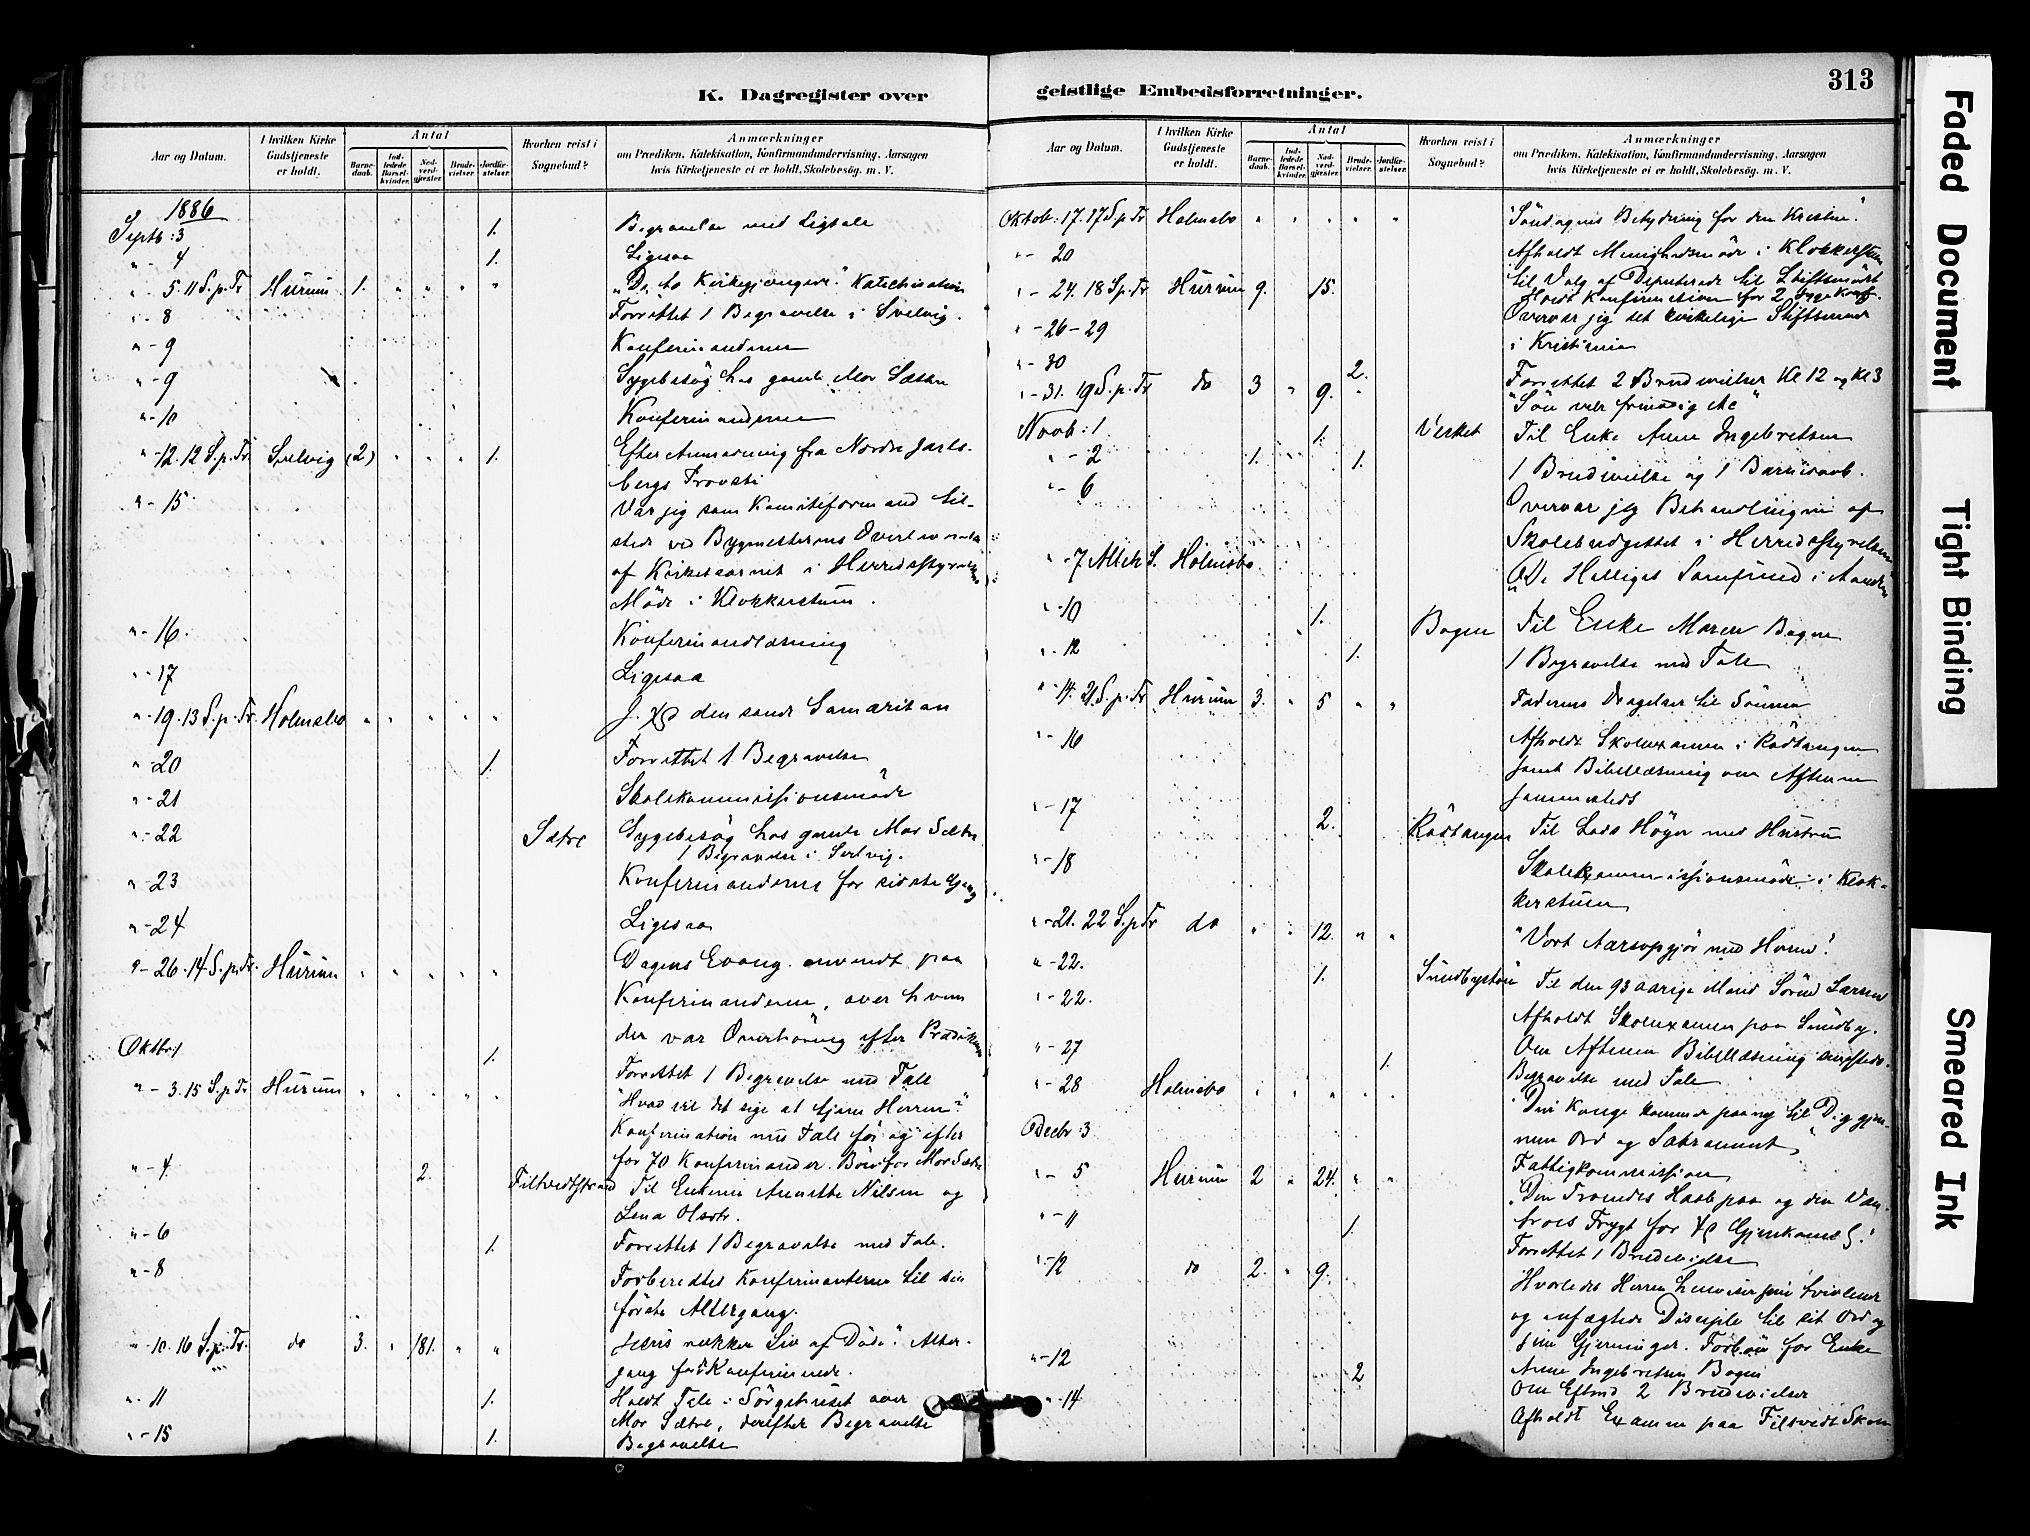 K. Dagregister over
Aar og Datum.
I hvilken Kirke Gudstjeneste er holdt.
Antal
Barne-daab.
Ind-ledede Barsel-kvinder.
Nad-verd-gjæster.
Brude-vielser.
Jordfæ-stelser.
Hvorhen reist i Sognebud?
Anmærkninger
om Prædiken, Katekisation, Konfirmandundervisning, Aarsagen
hvis Kirketjeneste ei er holdt, Skolebesøg. m. V.
1886
Septb: 3 1. Begravelse med Ligtale
" - 4 1. Ligesaa
" - 5. 11 S. p. Tr Hurum 1. " " " " "De to Kirkegjængere". Katechisation
" - 8 Forrettet 1 Begravelse i Svelvig.
" - 9 Konfirmanderne
" - 9 Sygebesøg hos gamle Mor Sætre
" - 10 Konfirmanderne
" - 12. 12 S. p. Tr. Svelvig (2) " " " 1. Efter Anmodning fra Nordre Jarls-
bergs Provsti
" - 15 Var jeg som Komiteformand til-
stede ved Bygmesterens
af Kirketaarnet i Herredsstyrelsens
Möde i Klokkerstuen.
" - 16. Konfirmandlæsning
" - 17 Ligesaa
" - 19. 13 S. p. Tr. Holmsbo " " " " " den sande Samaritan
" - 20 1. Forrettet 1 Begravelse
" - 21 Skolekommissionsmöde
" - 22 Sætre Sygebesøg hos gamle Mor Sætre
1 Begravelse i Svelvig.
" - 23 Konfirmanderne for sidste Gang
" - 24 Ligesaa
" - 26. 14 S. p. Tr. Hurum " " " " Dagens Evang. anvendt paa
Konfirmanderne, over hvem
der var Overhöring efter Prædikenen
Oktbr 1 1. Forrettet 1 Begravelse med Tale
" - 3. 15 S. p. Tr Hurum " " " " " "Hvad vil det sige at tjene Herren"?
Konfirmation med Tale før og efter
for 70 Konfirmander. Bön for Mor Sætre
" - 4 2. Filtvedtstrand Til Enkerne Annette Nilsen og
Lena Olsdtr.
" - 6 1. Forrettet 1 Begravelse med Tale.
" - 8 Forberedtes Konfirmanterne til sin
første Altergang.
" - 10. 16 S. p. Tr. do 3. " 181. " " Jesus vækker Liv af Döde". Alter-
gang for Konfirmerede.
" - 11 1. Holdt Tale i Sörgehuset over
Mor Sætre, derefter Begravelse
" - 15 1. Begravelse
313
geistlige Embedsforretninger.
Aar og Datum.
I hvilken Kirke Gudstjeneste er holdt.
Antal
Barne-daab.
Ind-ledede Barsel-kvinder.
Nad-verd-gjæster.
Brude-vielser.
Jordfæ-stelser.
Hvorhen reist i Sognebud?
Anmærkninger
om Prædiken, Katekisation, Konfirmandundervisning, Aarsagen
hvis Kirketjeneste ei er holdt, Skolebesög. m. V.
Oktob: 17. 17 S. p. Tr Holmsbo " " " " " "Söndagens Betydning for den Kristne".
" - 20 Afholdt Menighedsmöde i Klokkerstuen
til Valg af Deputerede til Stiftsmödet
" - 24. 18 S. p. Tr Hurum 9. 15. Holdt Konfirmation for 2 syge Konf.
" - 26 - 29 Overvar jeg det kirkelige Stiftsmöde
i Kristiania
" - 30 2. Forrettet 2 Brudevielser Kl 12 og Kl 3
" - 31. 19 S. p. Tr do 3 " 9. " "Sön vær frimodig &c"
Novb: 1 1. Verket Til Enke Anne Ingebretsen
" - 2 1. 1. 1 Brudevielse og 1 Barnedaab.
" - 6 Overvar jeg Behandlingen af
Skolebudgettet i Herredsstyrelsen
" - 7 Alleh. S. Holmsbo "De Helliges Samfund i Aanden
" - 10 1. Bogen Til Enke Maren Bogen
" - 12 1. 1 Begravelse med Tale
" - 14. 21 S. p. Tr Hurum 3. " 5 " " Faderens Dragelser til Sönnen
" - 16 Afholdt Skolexamen i Rödtangen
samt Bibellæsning om Aftenen
sammesteds
" - 17 2. Rödtangen Til Lods Höyer med Hustru
" - 18 Skolekommissionsmöde i Klok-
kerstuen
" - 21. 22 S. p. Tr do " " 12. " " "Vort Aarsopgjör med Herren".
" - 22. 1. Til den 93 aarige Mand Sörend Larsen
" - 22. Afholdt Skolexamen paa Sundby.
Om Aftenen Bibellæsning sammesteds.
" - 27 1. Begravelse med Tale
" - 28 Holmsbo " " " " " Din Konge kommer paany til Dig gjen-
nem Ord og Sakrament"
Decbr: 3 Fattigkommission
" - 5 Hurum 2 " 24. " " "Den Troendes Haab paa og den Van-
troes Frygt for Gjenkomst".
" - 11 1. Forrettet 1 Brudevielse
" - 12 do 2. " 9. Hvorledes Herren henviser sine tvivlende
og anfægtede Disciple til sit Ord og
sine Gjerninger. Forbön for Enke
Anne Ingebretsen Bogen
" - 12 2 Om Eftmd 2 Brudevielser
" - 14 Afholdt Examen paa Filtvedt Skole
Faded Document
Tight Binding
Smeared Ink